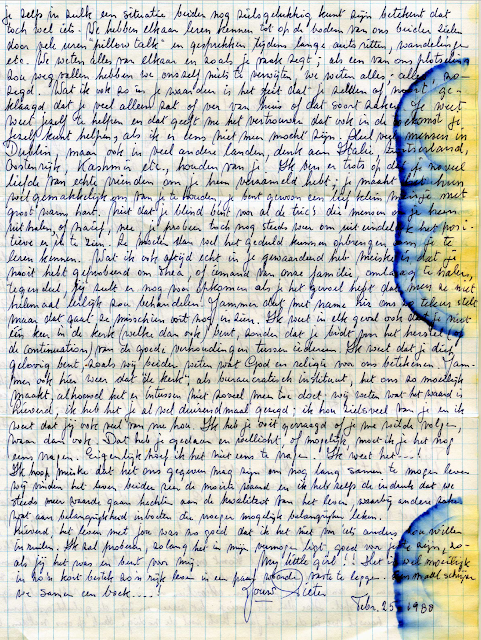 Je zelf in zulk een situatie beiden nog zielsgelukkig kunt zijn betekent dat
toch wel iets. We hebben elkaar leren kennen tot op de bodem van ons beider zielen
door vele uren "pillow talk" en gesprekken tijdens lange auto ritten, wandelingen
etc. We weten alles van elkaar en zoals je vaak zegt; als een van ons plotseling
zou weg vallen hebben we onszelf niets te verwijten, we weten alles, alles, ge-
zegd. Wat ik ook zo in je waardeer is het feit dat je zelden of nooit ge-
klaagd dat je veel alleen zat of ver van huis of dat soort zaken. Je weet
jezelf te helpen en dat geeft me het vertrouwen dat ook in de toekomst je
jezelf kunt helpen, als ik er eens niet meer mocht zijn. Heel veel mensen in
Dublin, maar ook in veel andere landen, denk aan Italië, Zwitserland,
Oostenrijk, Kashmir etc, houden van je. Ik ben er trots op dat je zoveel
liefde van echte vrienden om je heen verzameld hebt; je maakt het hun
wel gemakkelijk om van je te houden, je bent gewoon een lief klein meisje met
groot warm hart. Niet dat je blind bent voor al de trics die mensen met je
uithalen, of naief, nee, je probeert toch nog steeds weer om uiteindelijk het posi-
tieve er in te zien. Ze moeten dan wel het geduld kunnen opbrengen om je te
leren kennen. Wat ik ook altijd echt in je gewaardeerd heb meiske is dat je
nooit hebt geprobeerd om Thea of iemand van onze familie omlaag te halen,
tegendeel, jij zult er nog voor opkomen als je het gevoel hebt dat men ze niet
helemaal eerlijk zou behandelen. Jammer dat met name Ria ons zo teleurstelt
maar dat gaat ze misschien ooit nog inzien. Ik weet in elk geval ook dat je niet
één keer in de kerk (welke dan ook) bent, zonder dat je bidt om het herstel en
de continuation van de goede verhoudingen tussen iedereen. Ik weet dat je diep
gelovig bent, zoals wij beiden weten wat God en religie voor ons betekenen. Jam-
mer ook hier weer dat de kerk, als bureaucratisch instituut, het ons zo moeilijk
maakt, alhoewel het er intussen niet zoveel meer toe doet, wij weten wat het waard is
Lieverd, ik heb het je al wel duizendmaal gezegd; ik hou zielsveel van je en ik
weet dat jij ook veel van me hou. Ik heb je ooit gevraagd of je me wilde volgen,
waar dan ook. Dat heb je gedaan en wellicht, of mogelijk, moet ik je het nog
eens vragen. Eigenlijk hoef ik het niet eens te vragen. Ik weet het ---!
Ik hoop, mieke dat het ons gegeven mag zijn om nog lang samen te mogen leven
wij vinden het leven beider zeer de moeite waard en ik heb zelfs de indruk dat we
steeds meer waarde gaan hechten aan de kwaliteit van het leven, waarbij andere zaken
wat aan belangrijkheid inboeten die vroeger mogelijk belangrijker leken.
Lieverd, het leven met jou was zo goed dat ik het niet om iets anders zou willen
inruilen. Ik zal proberen, zolang het in mijn vermogen ligt, goed voor je te zijn, zo-
als jij het was en bent voor mij. My little girl!! Het is wel moeilijk
in zo'n kort bestek zo'n rijk leven in een paar woorden vast te leggen.
we samen een boek....! Jouw Pieter
Febr. 25, 1988